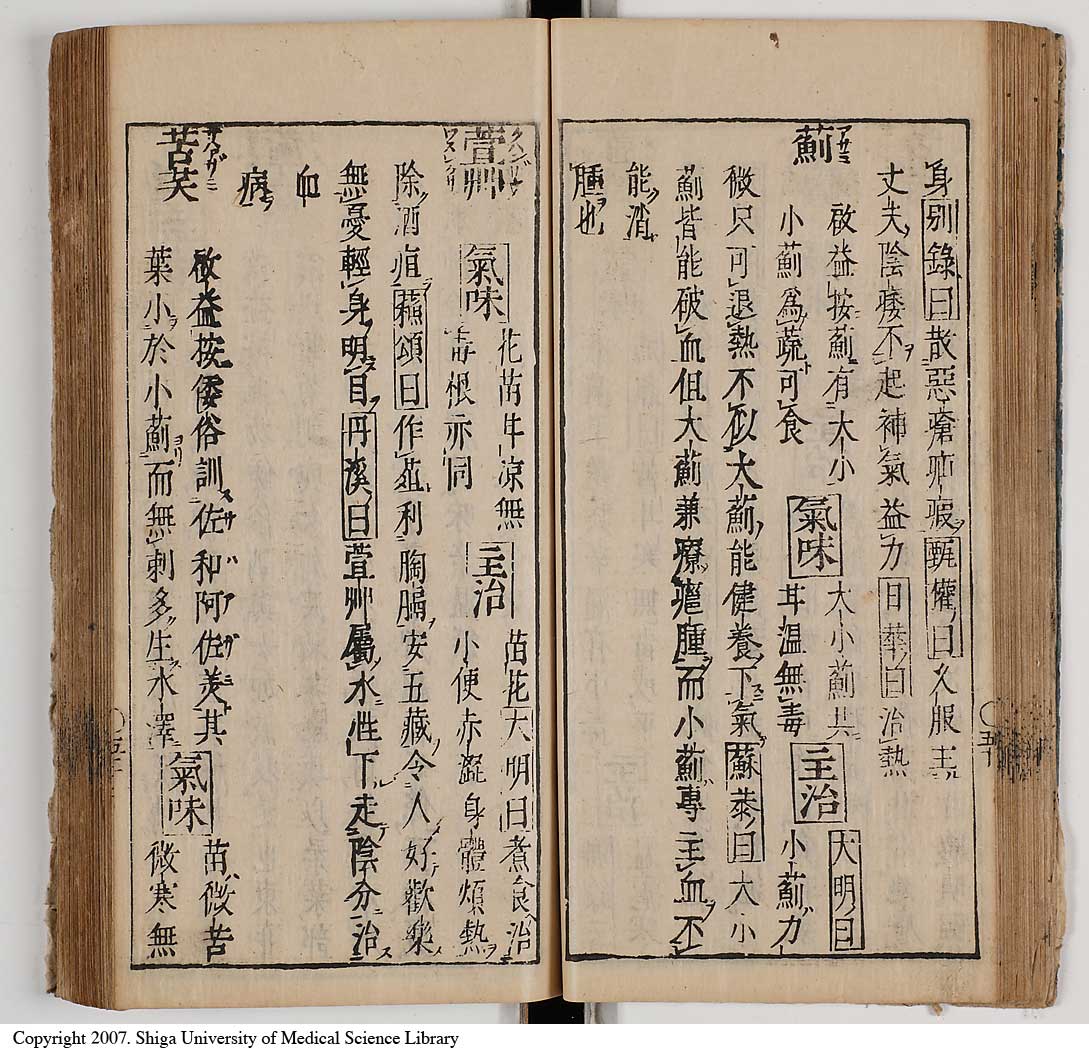 身別錄曰散惡瘡疥瘕甄權曰久服主
丈夫陰痿不起補氣益力日華曰治熱
薊
アザミ
啟益按薊有大小
小薊為蔬可食
氣味
大小薊共
甘溫無毒
主治
大明曰
小薊力
微只可退熱不似大薊能健養下氣蘇恭曰大小
薊皆能破血但大薊兼療癰腫而小薊專主血不
能消
腫也
萱艸
氣味
花苗甘凉無
毒根亦同
主治
苗花大明曰煮食治
小便赤澀身體煩熱
除酒疸蘇頌曰作葅利胸膈安五藏令人好歡樂
無憂輕身明目丹溪曰萱艸屬水性下走陰分治
血
病
苦芙
啟益按倭俗訓佐和阿佐美其
サハアザミ
葉小於小薊而無刺多生水澤
氣味
苗微苦
微寒無
〇五十
Copyright 2007. Shiga University of Medical Science Library